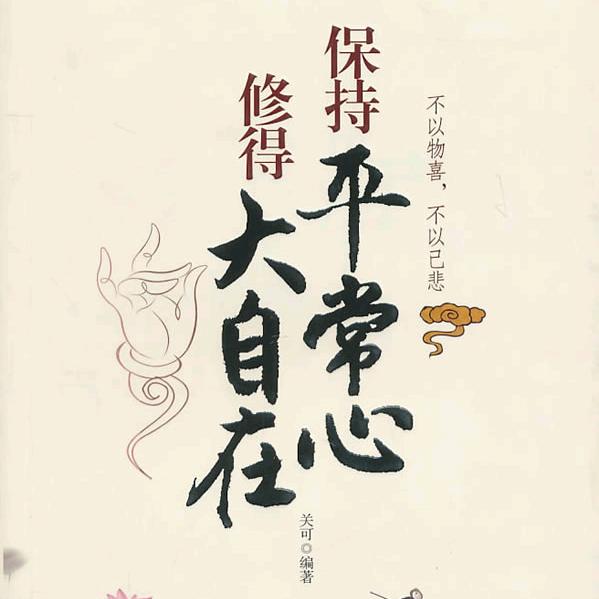 不以物喜，不以己悲
保持平常心
修得大自在
关可◎编著